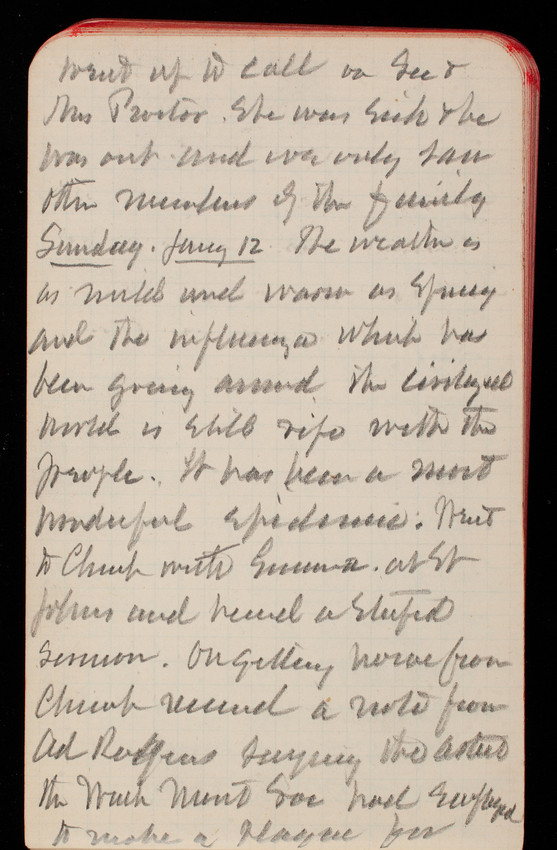 went up to call on Gen &
Mrs Proctor. She was sick & he
was out and we only saw
other members of the family
Sunday. Jany 12 The weather is
as mild and warm as Spring
and the influenza which has
been going around the civilized
world is still rife with the
people. It has been a most
wonderful epidemic. Went
to Church with Emma. at St
Johns and heard a stupid
sermon. On getting home from
Church received a note from
Ad Rodgers saying the artist
the Wash Mont Soc had employed
to make a plaque for